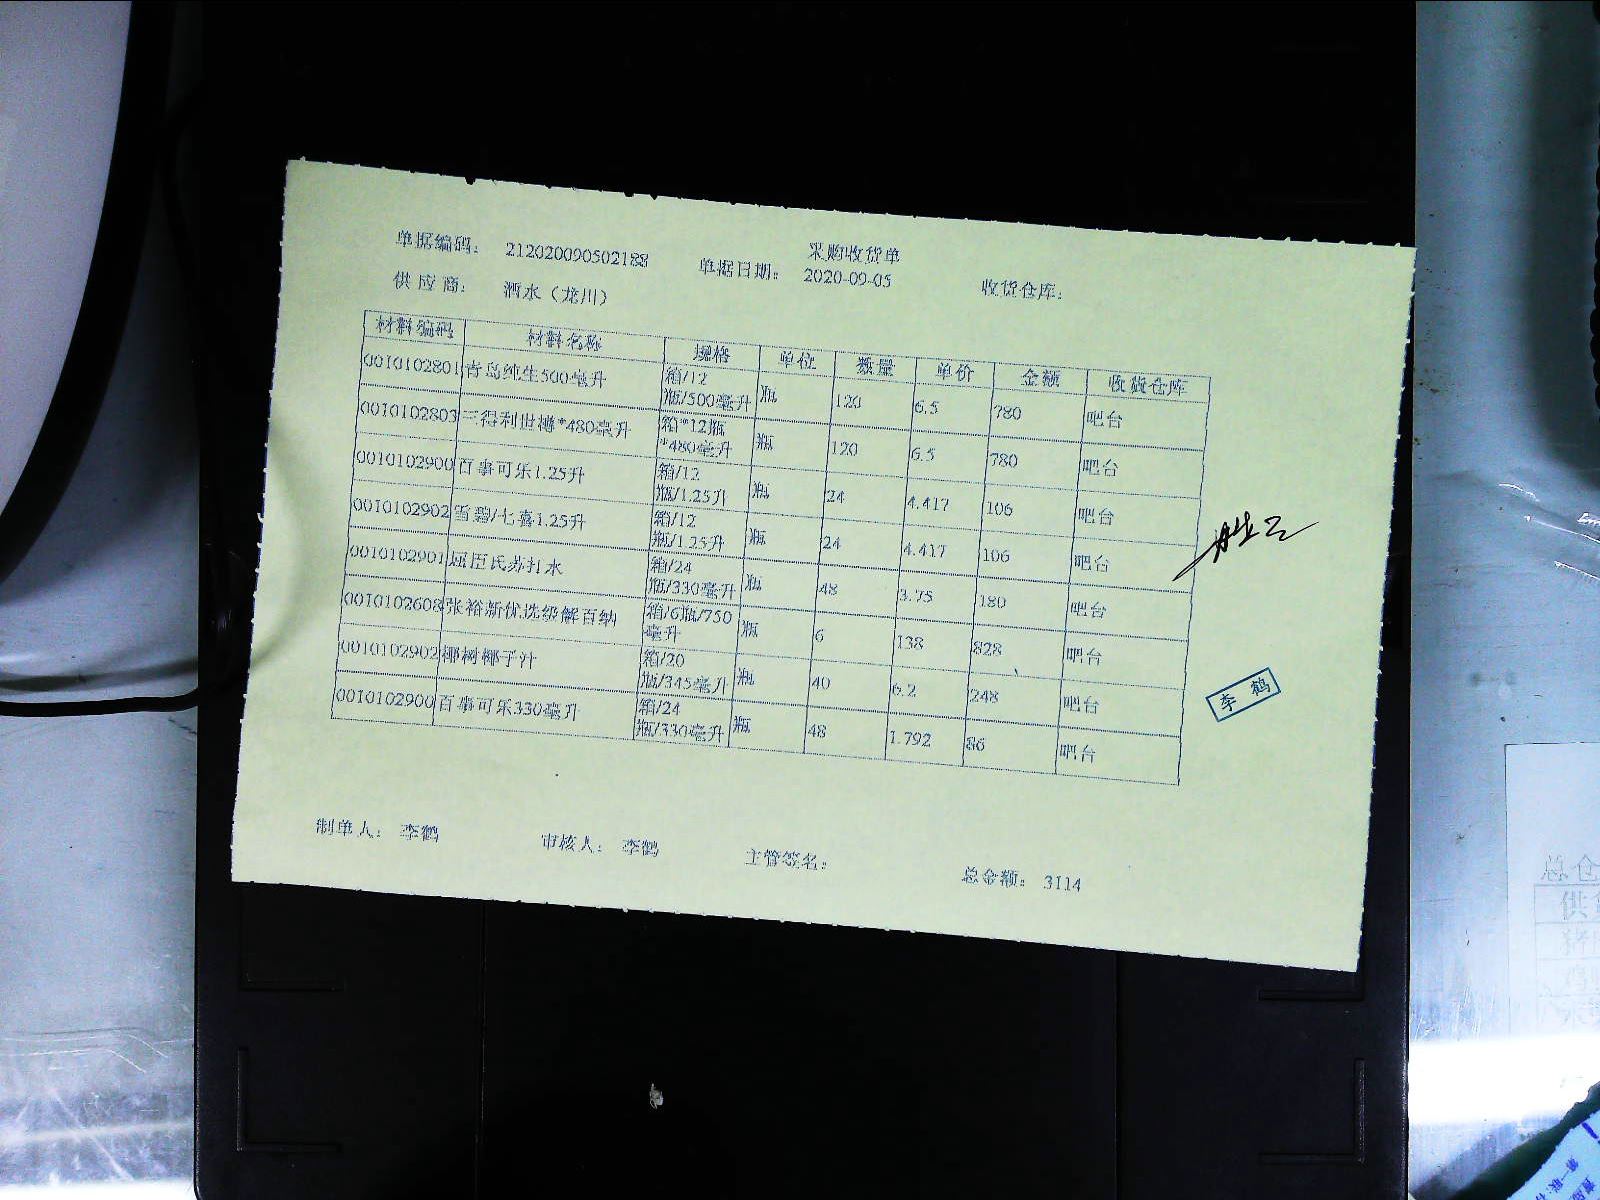 采购收货单
单据编码： 212020090502188 单据日期： 2020-09-05 收货仓库：
供应商： 酒水（龙川）
材料编码 材料名称 规格 单位 数量 单价 金额 收货仓库
0010102801 青岛纯生500毫升 箱/12瓶/500毫升 瓶 120 6.5 780 吧台
0010102803 三得利世樽*480毫升 箱*12瓶*480毫升 瓶 120 6.5 780 吧台
0010102900 百事可乐1.25升 箱/12瓶/1.25升 瓶 24 4.417 106 吧台
0010102902 雪碧/七喜1.25升 箱/12瓶/1.25升 瓶 24 4.417 106 吧台
0010102901 屈臣氏苏打水 箱/24瓶/330毫升 瓶 48 3.75 180 吧台
0010102608 张裕新优选级解百纳 箱/6瓶/750毫升 瓶 6 138 828 吧台
0010102902 椰树椰子汁 箱/20瓶/345毫升 瓶 40 6.2 248 吧台
0010102900 百事可乐330毫升 箱/24瓶/330毫升 瓶 48 1.792 86 吧台
李鹤
制单人： 李鹤 审核人： 李鹤 主管签名： 总金额： 3114